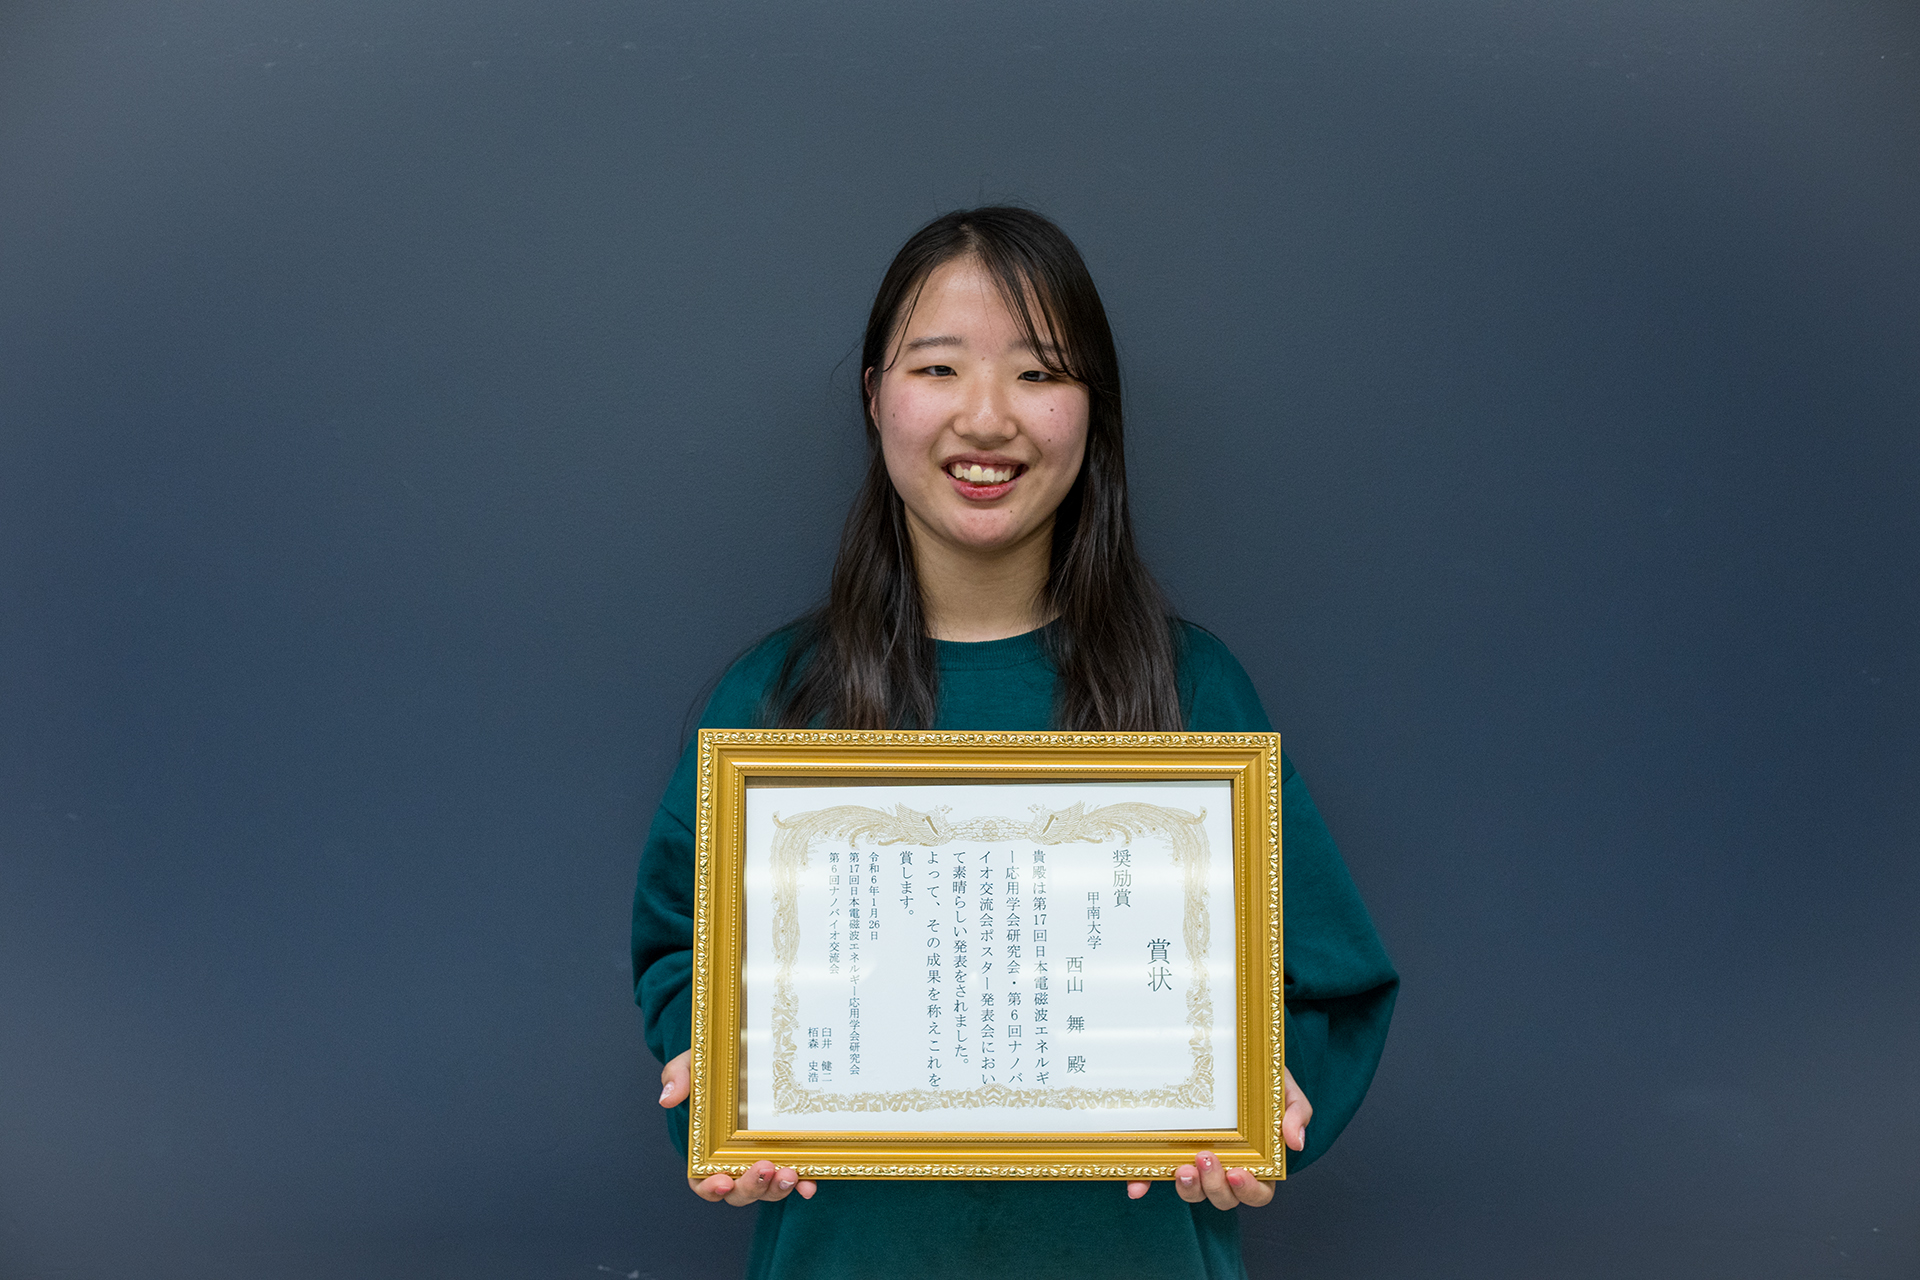 賞状
奨励賞
甲南大学
西山 舞 殿
貴殿は第17回日本電磁波エネルギ
ー応用学会研究会・第6回ナノバ
イオ交流会ポスター発表会におい
て素晴らしい発表をされました。
よって、その成果を称えこれを
賞します。
令和6年1月26日
第17回日本電磁波エネルギー応用学会研究会
第6回ナノバイオ交流会
臼井 健二
栢森 史浩